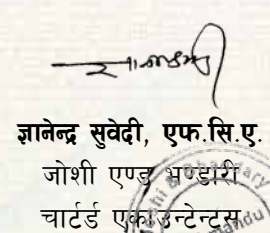 ज्ञानेन्द्र सुवेदी, एफ.सि.ए.
जोशी एण्ड भण्डारी
चार्टर्ड एकाउन्टेन्टस